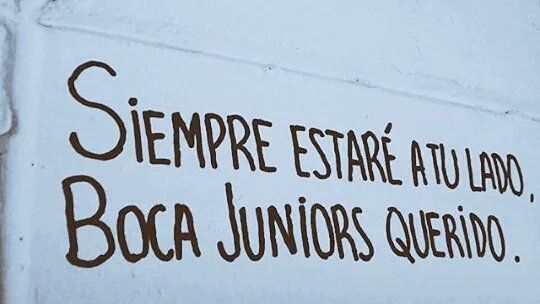 SiEMPRE ESTARÉ A TU LADO,
BOCA JUNiORS QUERiDO.